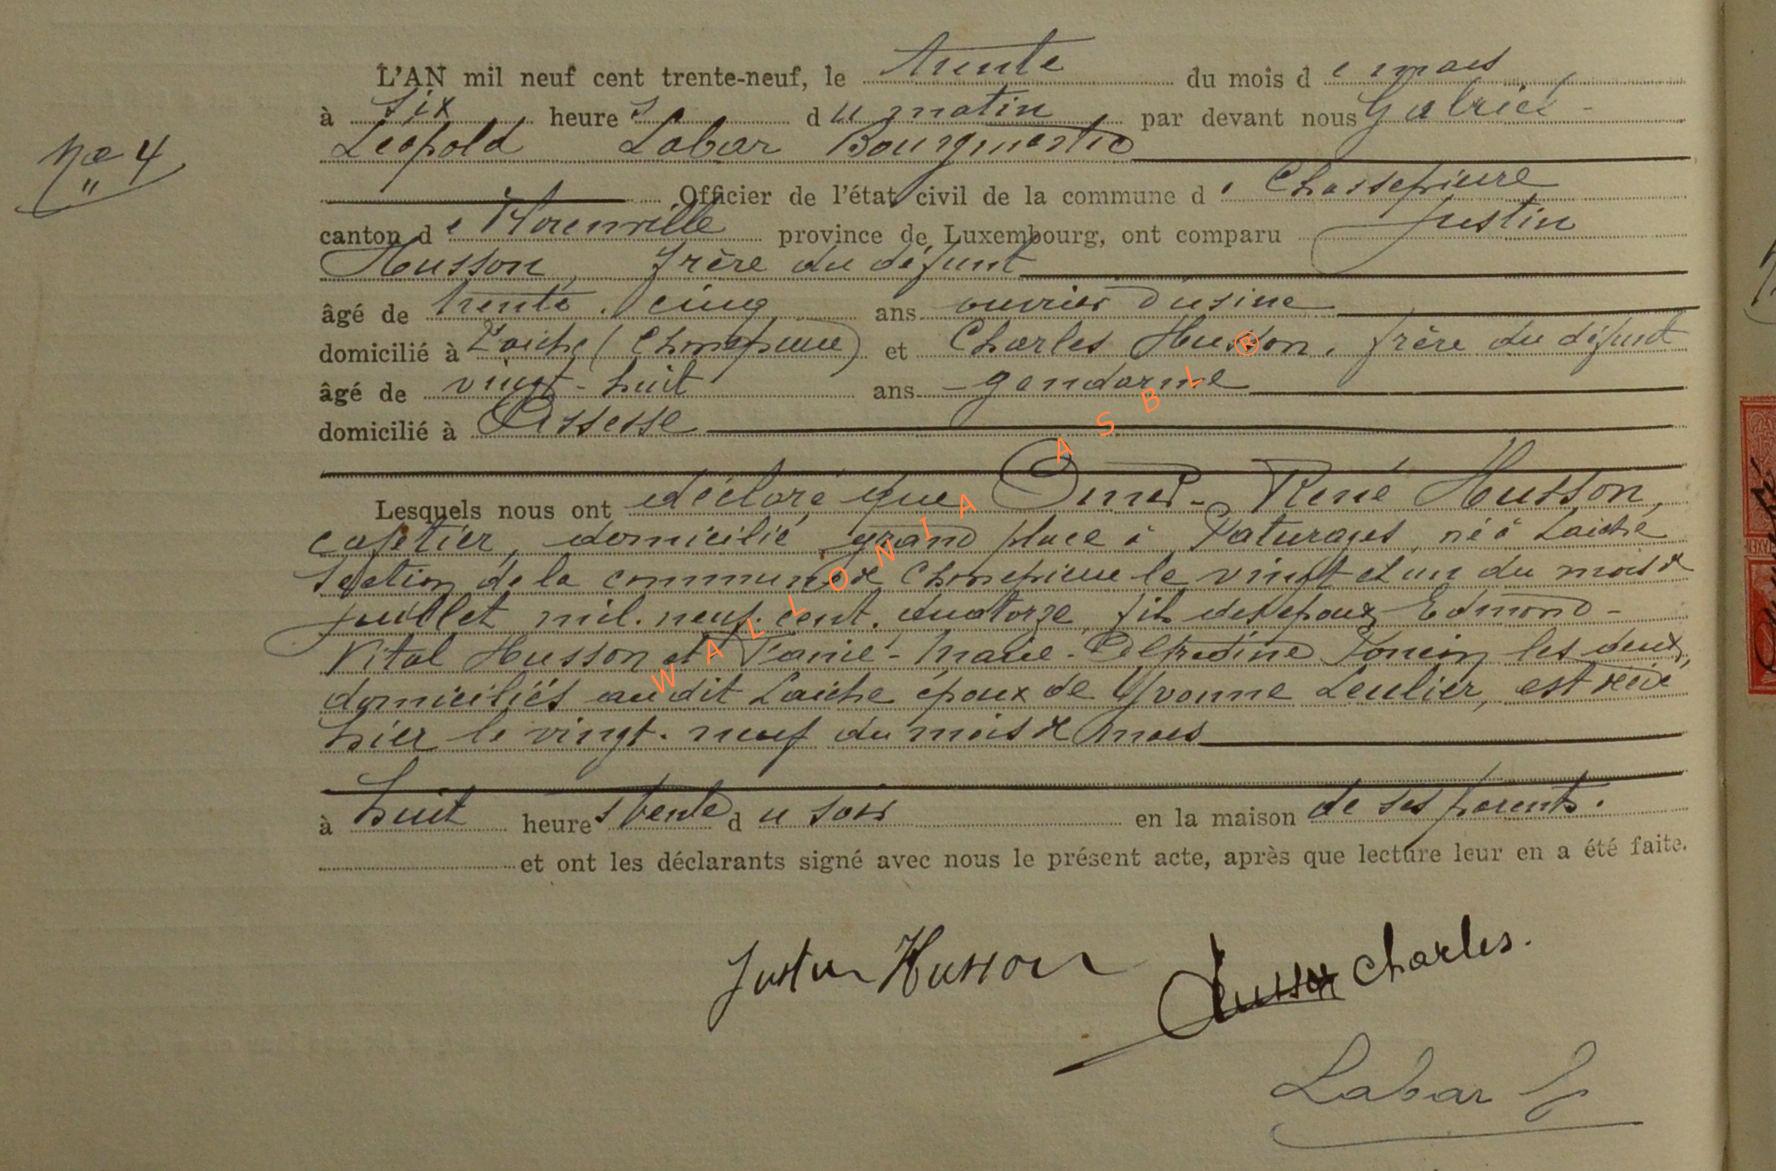 L'AN mil neuf cent trente-neuf, le trente du mois de mars
à six heures du matin par devant nous Gabriel-
Léopold Labar Bourgmestre
N° 4
Officier de l'état civil de la commune de Chassepierre
canton de Florenville province de Luxembourg, ont comparu Justin
Husson, frère du défunt
âgé de trente-cinq ans ouvrier d'usine
domicilié à Laiche (Chassepierre) et Charles Husson, frère du défunt
âgé de vingt-huit ans - gendarme
domicilié à Assesse
Lesquels nous ont déclaré que Omer-René Husson,
cafetier, domicilié grand place à Paturages, né à Laiche
section de la commune de Chassepierre le vingt et un du mois de
juillet mil. neuf. cent. quatorze, fils des époux Edmond-
Vital Husson et Marie-Alfredine les deux,
domiciliés audit Laiche époux de Yvonne Leulier, est décédé
hier le vingt-neuf du mois de mars
à huit heures trente du soir en la maison de ses parents.
et ont les déclarants signé avec nous le présent acte, après que lecture leur en a été faite.
Justin Husson
Husson Charles.
Labar G
WALLONIA ASBL ®